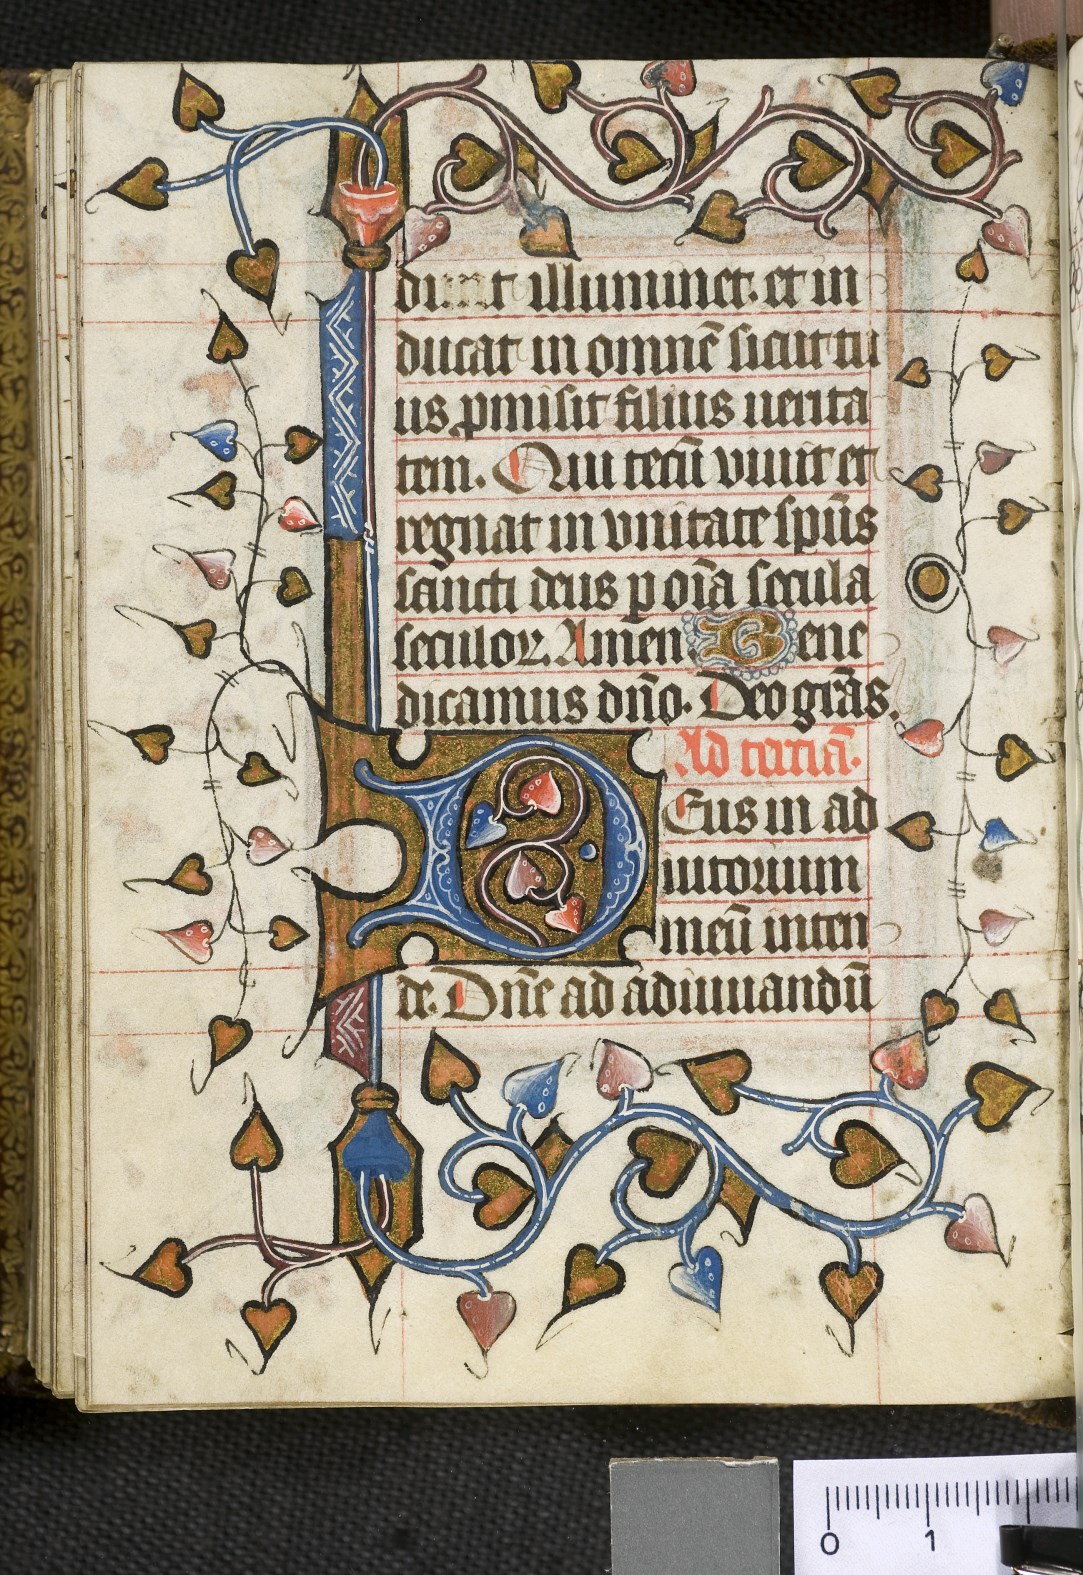 dunt illuminet. et in
ducat in omnē sicut tu
us ꝓmisit filius uerita
tem. Qui tecū viuit et
regnat in vnitate spūs
sancti deus p oīa secula
seculoꝝ. Amen. Bene
dicamus dn̄o. Deo gr̄as.
Ad tertiā.
Deus in ad
iutorium
meū inten
de. Dn̄e ad adiuuandū
0 1